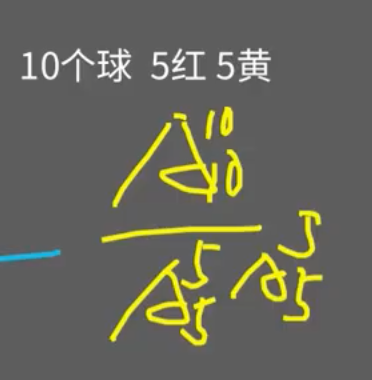 10个球 5红 5黄
A¹⁰₁₀
A⁵₅ A⁵₅